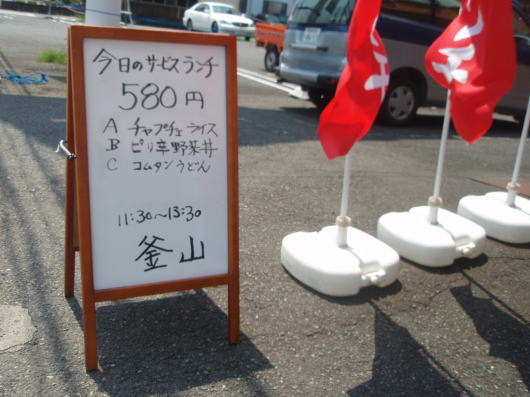 今日のサービスランチ
580円
A チャプチェライス
B ピリ辛野菜丼
C コムタンうどん
11:30~13:30
釜山